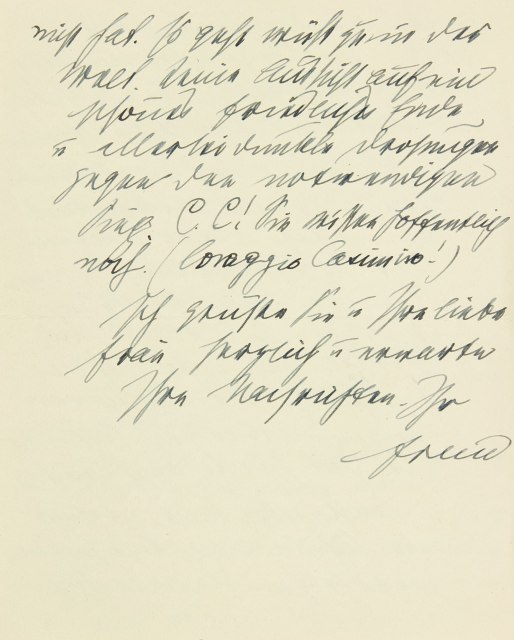 mist hat. Es geht wüst zu in der
Welt. Keine Aussicht auf ein
schönes friedliches Ende
u allerlei dunkle Drohungen
gegen den notwendigen
Sieg. C. C! Sie wissen hoffentlich
noch. (Coraggio Casimiro!)
Ich grüße Sie u Ihre liebe
Frau herzlich u erwarte
Ihre Nachrichten. Ihr
Freud